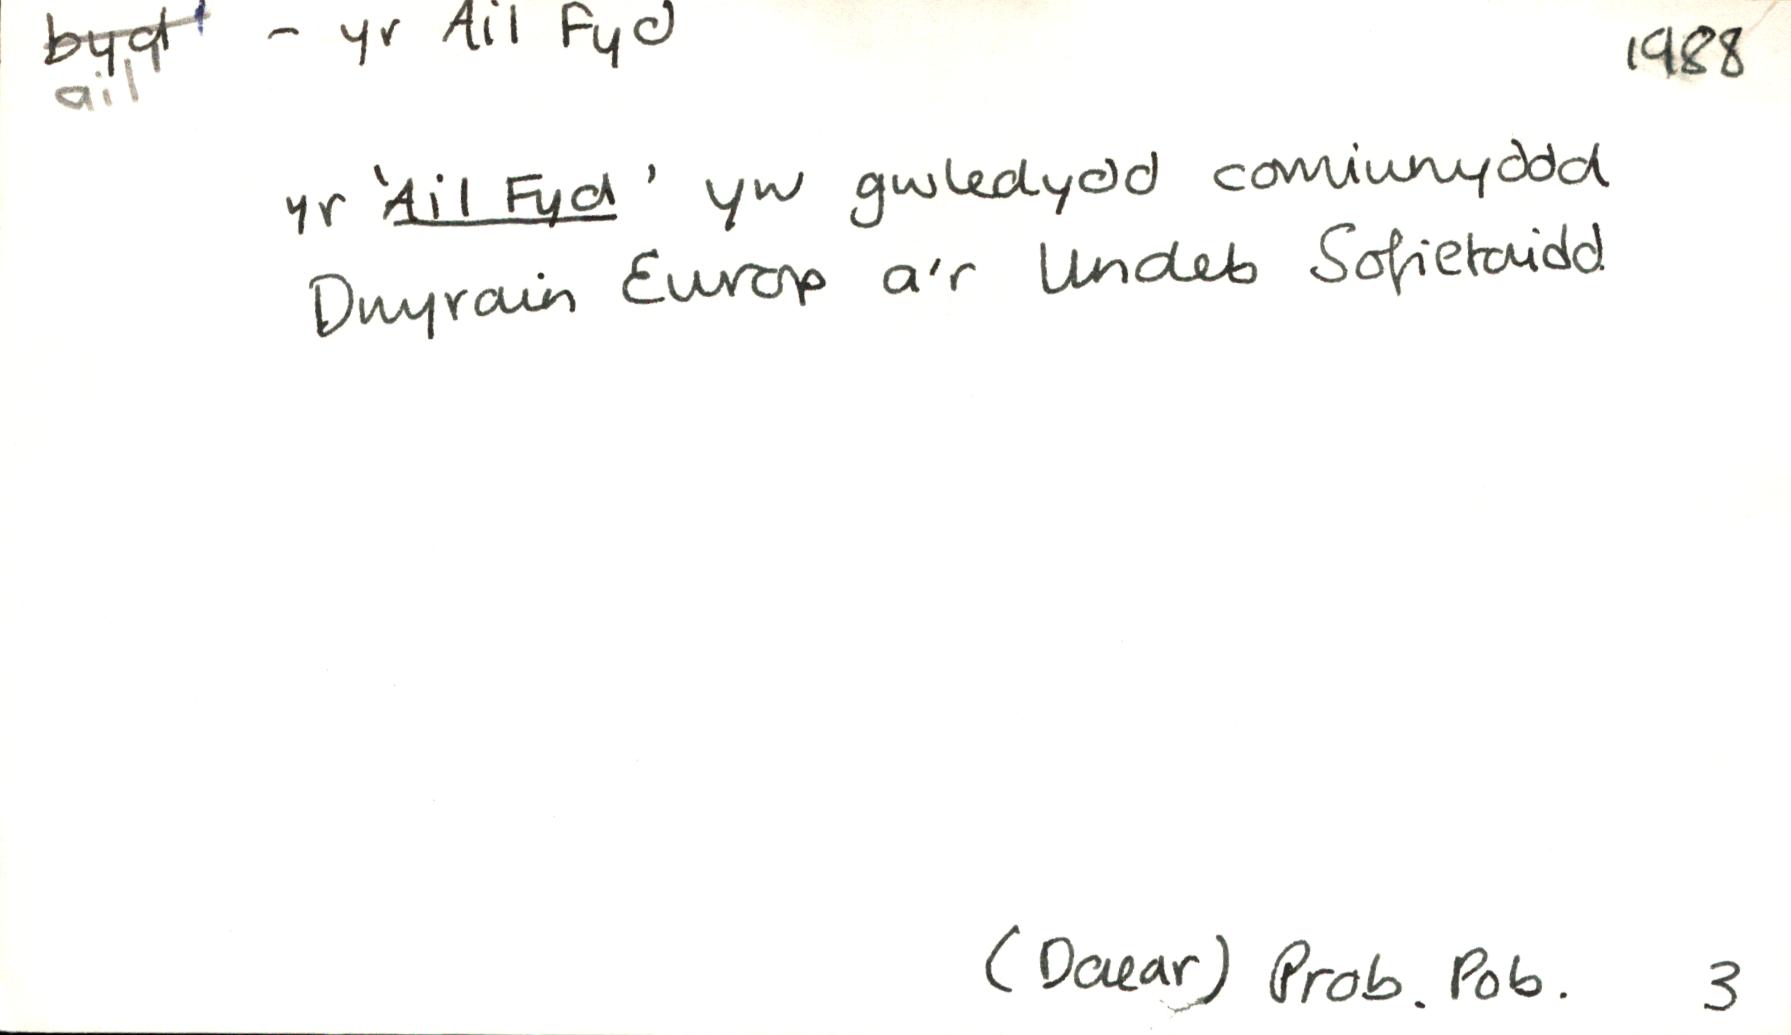 byd¹ - yr Ail Fyd 1988
ail
yr 'Ail Fyd' yw gwledydd comiwnyddd
Dwyrain Ewrop a'r Undeb Sofietaidd
(Daear) Prob. Pob. 3